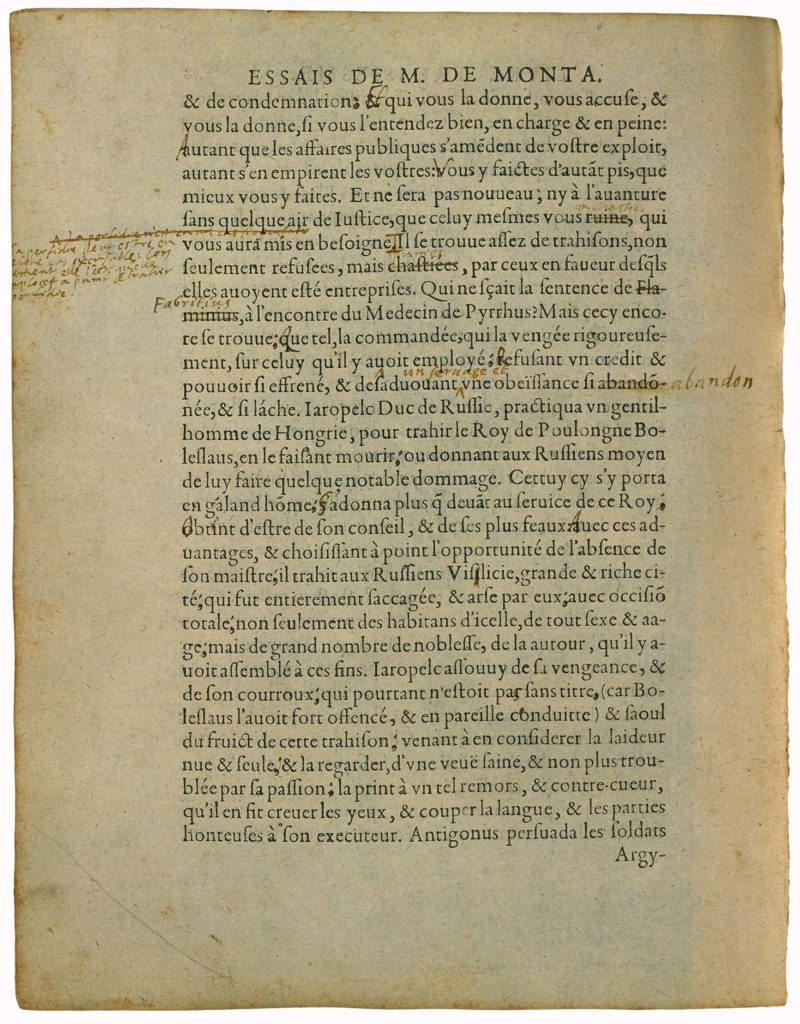 ESSAIS DE M. DE MONTA.
& de condemnation: Et qui vous la donne, vous accuse, &
vous la donne, si vous l'entendez bien, en charge & en peine:
Autant que les affaires publiques s'amẽdent de vostre exploit,
autant s'en empirent les vostres: Vous y faictes d'autãt pis, que
mieux vous y faites. Et ne sera pas nouueau; ny à l'auanture
sans quelque air de Iustice, que celuy mesmes vous ruine, qui
vous aura mis en besoigne. Il se trouue assez de trahisons, non
la perfidie peut estre en
seulement refusees, mais chastiées, par ceux en faueur desq̃ls
elles auoyent esté entreprises. Qui ne sçait la sentence de Fla-
Fabritius
minius, à l'encontre du Medecin de Pyrrhus? Mais cecy enco-
re se trouue; Que tel, la commandée, qui la vengée rigoureuse-
ment, sur celuy qu'il y auoit employé; Refusant vn credit &
un servage et
pouuoir si effrené, & desaduouant vne obeïssance si abandõ- abandon
née, & si láche. Iaropelc Duc de Russie, practiqua vn gentil-
homme de Hongrie, pour trahir le Roy de Poulongne Bo-
leslaus, en le faisant mourir; ou donnant aux Russiens moyen
de luy faire quelque notable dommage. Cettuy cy s'y porta
en galand hõme; S'adonna plus q̃ deuãt au seruice de ce Roy;
Obtint d'estre de son conseil, & de ses plus feaux: Auec ces ad-
uantages, & choisissant à point l'opportunité de l'absence de
son maistre; il trahit aux Russiens Vislicie, grande & riche ci-
té; qui fut entierement saccagée, & arse par eux; auec occisiõ
totale; non seulement des habitans d'icelle, de tout sexe & aa-
ge; mais de grand nombre de noblesse, de la autour, qu'il y a-
uoit assemblé à ces fins. Iaropelc assouuy de sa vengeance, &
de son courroux; qui pourtant n'estoit pas sans titre, (car Bo-
leslaus l'auoit fort offencé, & en pareille conduitte) & saoul
du fruict de cette trahison; venant à en considerer la laideur
nue & seule; & la regarder, d'vne veuë saine, & non plus trou-
blée par sa passion; la print à vn tel remors, & contre-cueur,
qu'il en fit creuer les yeux, & couper la langue, & les parties
honteuses à son executeur. Antigonus persuada les soldats
Argy-